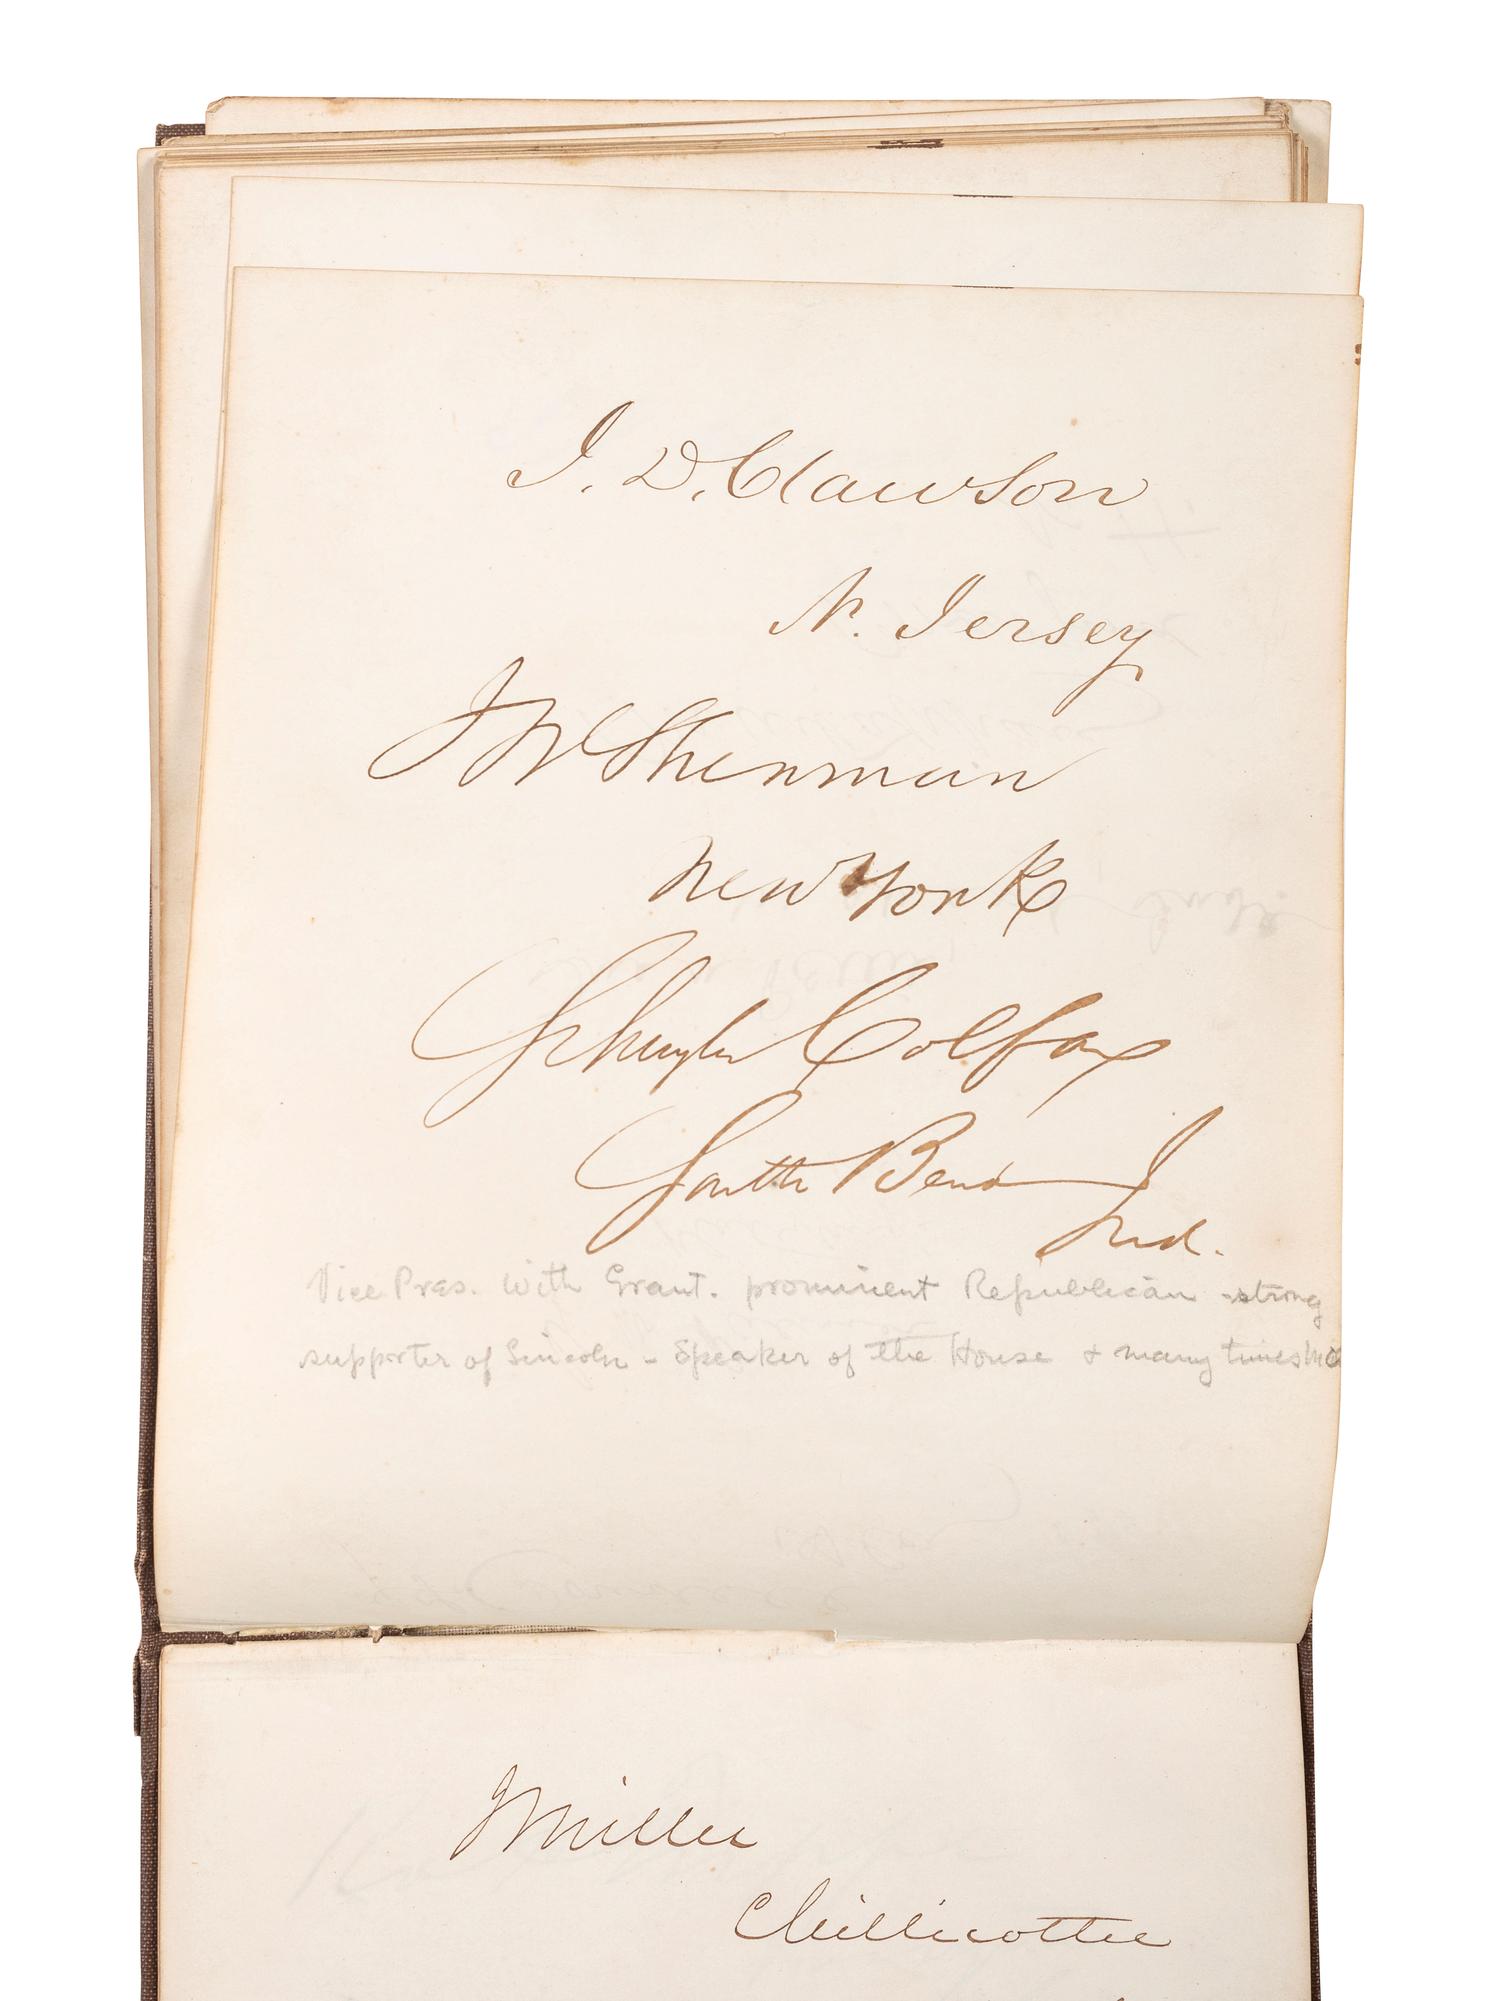 I. D. Clawson
N. Jersey
J W Sherman
New York
Schuyler Colfax
South Bend
Ind.
Vice Pres. with Grant. prominent Republican - strong
supporter of Lincoln - Speaker of the House & many times MC
J Miller
Chillicothe